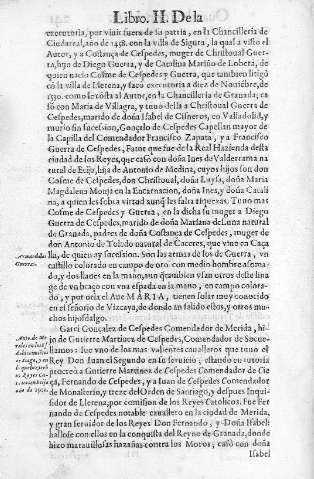 Libro. II. De la
executoria, por viuir fuera de su patria, en la Chancilleria de
Ciudareal, año de 1458. con la villa de Segura, la qual a visto el
Autor, y a Costança de Cespedes, muger de Christoual Guer-
ra, hijo de Diego Guerra, y de Catalina Mariño de Lobera, de
quien nacio Cosme de Cespedes y Guerra, que tambien litigò
cõ la villa de Llerena, y sacò executoria a diez de Nouiẽbre, de
1530. como le cõsta al Autor, en la Chancilleria de Granada; ca
sò con Maria de Villagra, y tuuo della a Christoual Guerra de
Cespedes, marido de doña Isabel de Cisneros, en Valladolid, y
murio sin sucession, Gonçalo de Cespedes Capellan mayor de
la Capilla del Comendador Francisco Zapata, y a Francisco
Guerra de Cespedes, Fator que fue de la Real Hazienda desta
ciudad de los Reyes, que casò con doña Ines de Valderrama na
tural de Ecija, hija de Antonio de Medina, cuyos hijos son don
Cosme de Cespedes, don Christoual, doña Luysa, doña Maria
Magdalena Monja en la Encarnacion, doña Ines, y doña Catali
na, a quien les sobra virtud aunq̃ les falta riquezas. Tuuo mas
Cosme de Cespedes y Guerra, en la dicha su muger a Diego
Guerra de Cespedes, marido de doña Mariana de Luna natural
de Granada, padres de doña Costança de Cespedes, muger de
don Antonio de Toledo natural de Caceres, que viue en Caça
lla, de quien ay sucession. Son las armas de los de Guerra, vn
castillo colorado en campo de oro, con medio hombre asoma-
do, y dos llaues en la mano, aun q̃ tambien vsan otros deste lina
ge de vn braço con vna espada en la mano, en campo colora-
do, y por orla el Aue MARIA, tienen solar muy conocido
en el señorio de Vizcaya, de donde an salido estos, y otros mu-
chos hijosdalgo.
Garci Gonçalez de Cespedes Comendador de Merida, hi-
jo de Gutierre Martinez de Cespedes, Comendador de Socue-
llamos: fue vno de los mas valientes caualleros que tuuo el
Rey Don Iuan el Segundo en su seruicio; estando en vitoria
procreò a Gutierre Martinez de Cespedes Comendador de
Fernando de Cespedes, y a Iuan de Cespedes Comendador
de Monasterio, y treze del Orden de Santiago, y despues Inquisi-
dor de Llerena, por comission de los Reyes Catolicos. Fue Fer-
nando de Cespedes notable cauallero en la ciudad de Merida,
y gran seruidor de los Reyes Don Fernando, y Doña Isabel:
hallose con ellos en la conquista del Reyno de Granada, donde
hizo marauillosas hazañas contra los Moros; casò con doña
Isabel